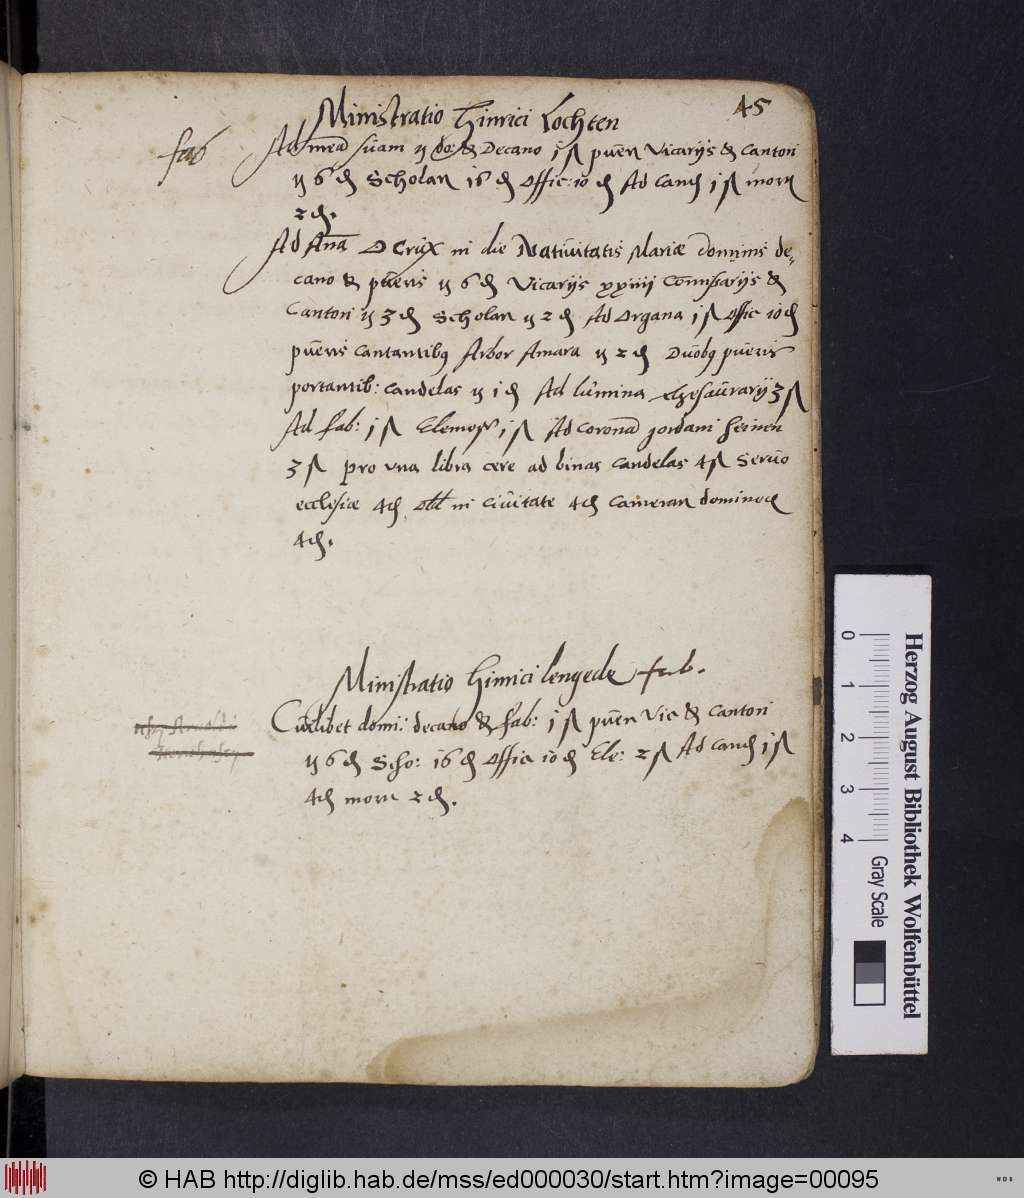 45
Ministratio Hinrici Lochten
fab
Ad mēā suam ij do: & Decano j ß pūeri Vicarijs & Cantori
ij 6 ₰ Scholar 16 ₰ Offic: 10 ₰ Ad Cand j ß
2 ₰.
Ad Anā O Crūx in die Natiūitatis Mariæ dominis de-
cano & pūeris ij 6 ₰ Vicarijs xxiiij Comissarijs &
Cantori ij 3 ₰ Scholar ij 2 ₰ Ad Organa j ß Offic 10 ₰
pūeris cantantibq Arbor Amara ij 2 ₰ Dūobq pūeris
portantib: candelas ij 1 ₰ Ad lūmina thesaūrarij 3 ß
Ad fab: j ß Elemos j ß Ad Coronā jordani heinen
3 ß pro vna libra cere ad binas candelas 4 ß Serūo
ecclesiæ 4 ₰ Obl in Ciūitate 4 ₰ Camerar dominor
4 ₰.
Ministratio Hinrici lengede fab.
Cūilibet domi: decano & fab: j ß pūeri Vic & Cantori
ij 6 ₰ Scho: 16 ₰ Offic 10 ₰ Ele: 2 ß Ad Cand j ß
4 ₰ 2 ₰.
Herzog August Bibliothek Wolfenbüttel
0 1 2 3 4
Gray Scale
© HAB http://diglib.hab.de/mss/ed000030/start.htm?image=00095